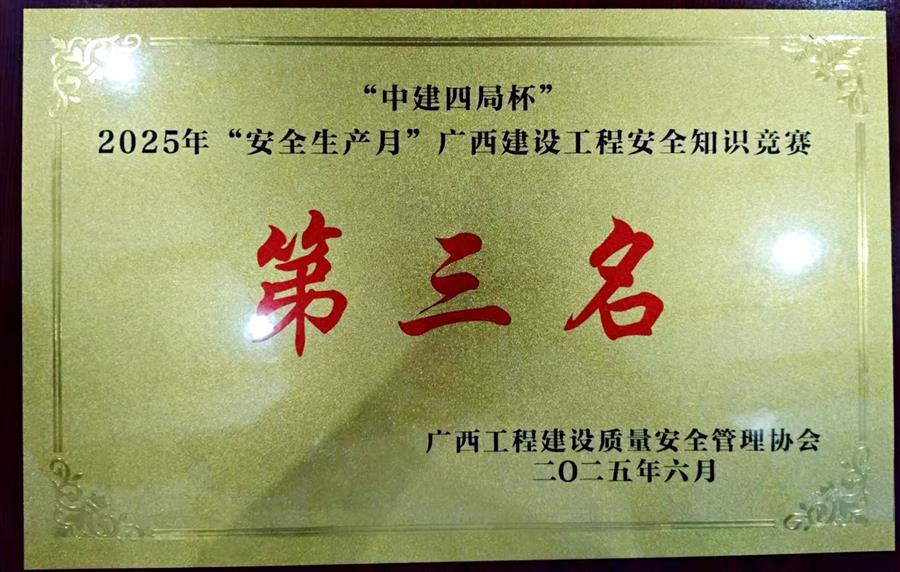 “中建四局杯”
2025年“安全生产月”广西建设工程安全知识竞赛
第三名
广西工程建设质量安全管理协会
二〇二五年六月